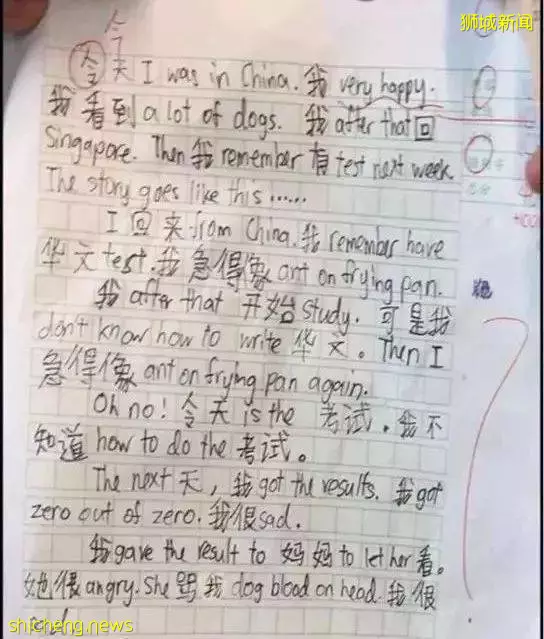 狮城新闻
今
今天 I was in China. 我 very happy.
我看到 a lot of dogs. 我 after that 回
Singapore. Then 我 remember 有 test next week.
The story goes like this ......
I 回来 from China. 我 remember have
华文 test. 我急得像 ant on frying pan.
我 after that 开始 study. 可是我
don't know how to write 华文。 Then I
急得像 ant on frying pan again.
Oh no! 今天 is the 考试. 我不
知道 how to do the 考试。
The next 天, 我 got the results. 我 got
zero out of zero. 我很 sad.
我 gave the result to 妈妈 to let her 看。
她很 angry. She 骂我 dog blood on head. 我很
sad.
shicheng.news